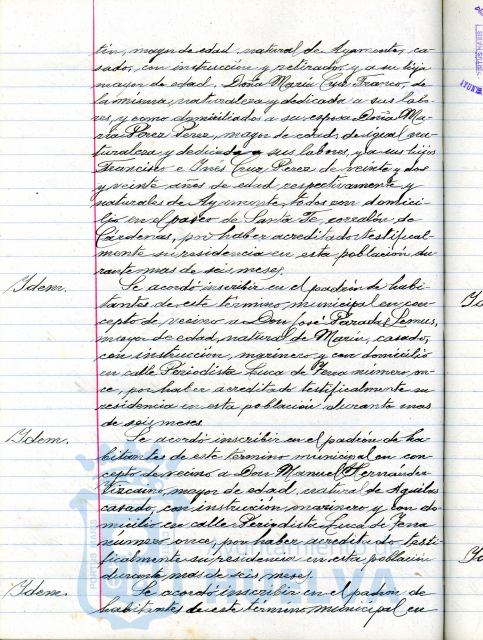 tín, mayor de edad, natural de Ayamonte, ca-
sado, con instrucción y retirado, y a su hija
mayor de edad, Doña María Cruz Franco, de
la misma naturaleza y dedicada a sus labo-
res, y como domiciliados a su esposa Doña Ma-
ría Pérez Pérez, mayor de edad, de igual na-
turaleza y dedicada a sus labores, y a sus hijos
Francisco e Inés Cruz Pérez de veinte y dos
y veinte años de edad respectivamente y
naturales de Ayamonte, todos con domici-
lio en el paseo de Santa Fe, corralón de
Cárdenas, por haber acreditado testifical-
mente su residencia en esta población du-
rante mas de seis meses.
Idem. Se acordó inscribir en el padrón de habi-
tantes de este término municipal en con-
cepto de vecino a Don José Parada Lemus,
mayor de edad, natural de Marín, casado,
con instrucción, marinero y con domicilio
en calle Periodista Luca de Tena número on-
ce, por haber acreditado testificalmente su
residencia en esta población durante mas
de seis meses
Idem. Se acordó inscribir en el padrón de ha-
bitantes de este término municipal en con-
cepto de vecino a Don Manuel Hernández
Vizcaino, mayor de edad, natural de Aguilas
casado, con instrucción marinero y con do-
micilio en calle Periodista Luca de Tena
número once, por haber acreditado testi-
ficalmente su residencia en esta población
durante mas de seis meses.
Idem. Se acordó inscribir en el padrón de
habitantes de este término municipal en